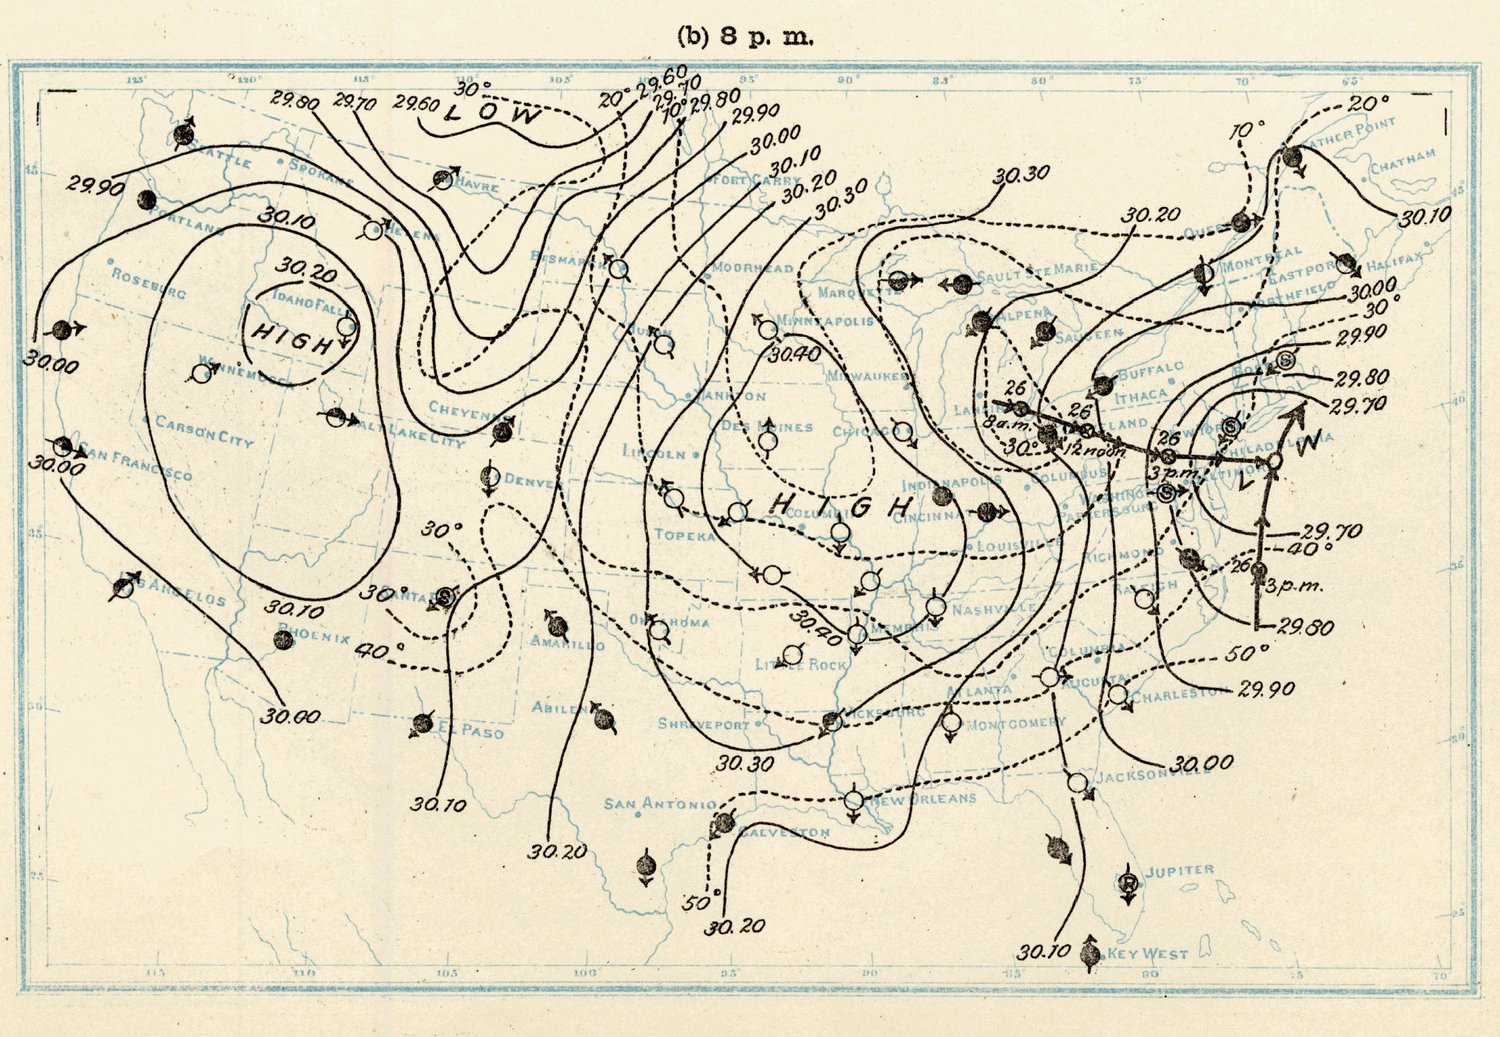 (b) 8 p. m.
125° 120° 115 110° 105 95° 90° 85° 80° 75 70° 65°
30° 20° 29.60
29.80 29.70 29.60 LOW 29.70
10° 29.80
29.90
20°
10°
FATHER POINT
SEATTLE
30.00
SPOKANE
CHATHAM
45
30.10
29.90
HAVRE
FORT GARRY
30.30
45
30.20
30.30
30.10
PORTLAND
30.20
30.10
HELENA
QUEBEC
30.20
BISMARCK
MOORHEAD
SAULT STE MARIE
MONTREAL
EASTPORT
HALIFAX
ROSEBURG
IDAHO FALLS
MARQUETTE
NORTHFIELD
30.00
30°
HIGH
HURON
MINNEAPOLIS
ALPENA
SAUGEEN
29.90
30.00
30.40
WINNEMUCCA
MILWAUKEE
BUFFALO
29.80
YANKTON
LANSING
26
ITHACA
29.70
CHEYENNE
26
CARSON CITY
SALT LAKE CITY
DES MOINES
CHICAGO
8 a.m.
CLEVELAND
26
N
PHILADELPHIA
SAN FRANCISCO
30.00
LINCOLN
30°
12 noon
3 p.m.
BALTIMORE
DENVER
INDIANAPOLIS
COLUMBUS
L
HIGH
WASHINGTON
COLUMBIA
CINCINNATI
PARKERSBURG
35
30°
TOPEKA
LOUISVILLE
RICHMOND
29.70
40°
26
35
LOS ANGELOS
30°
SANTA FE
RALEIGH
3 p.m.
30.10
NASHVILLE
PHOENIX
OKLAHOMA
30.40
MEMPHIS
29.80
40°
AMARILLO
LITTLE ROCK
COLUMBIA
50°
ATLANTA
AUGUSTA
29.90
30.00
ABILENE
CHARLESTON
EL PASO
SHREVEPORT
VICKSBURG
MONTGOMERY
30
30.30
30.00
JACKSONVILLE
30.10
SAN ANTONIO
NEW ORLEANS
GALVESTON
30.20
JUPITER
25
50°
30.20
25
30.10
KEY WEST
115 110 105 100° 95° 90 85 80 75 70